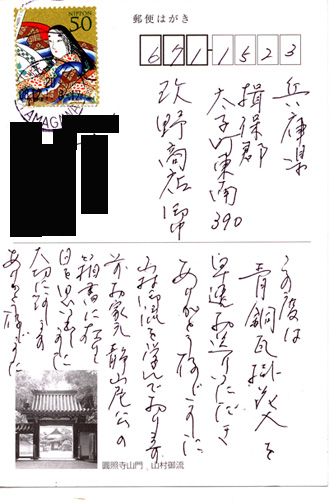 郵便はがき
NIPPON
50
671-1523
兵庫県
揖保郡
太子町東南390
野商店 御中
この度は
青銅瓦掛花入を
早速お送りいただき
ありがとう存じました
山村御流を学んでおります
前お家元 静山尼公の
箱書に
日を思い
大切に致します
ありがとう存じました
圓照寺山門 山村御流